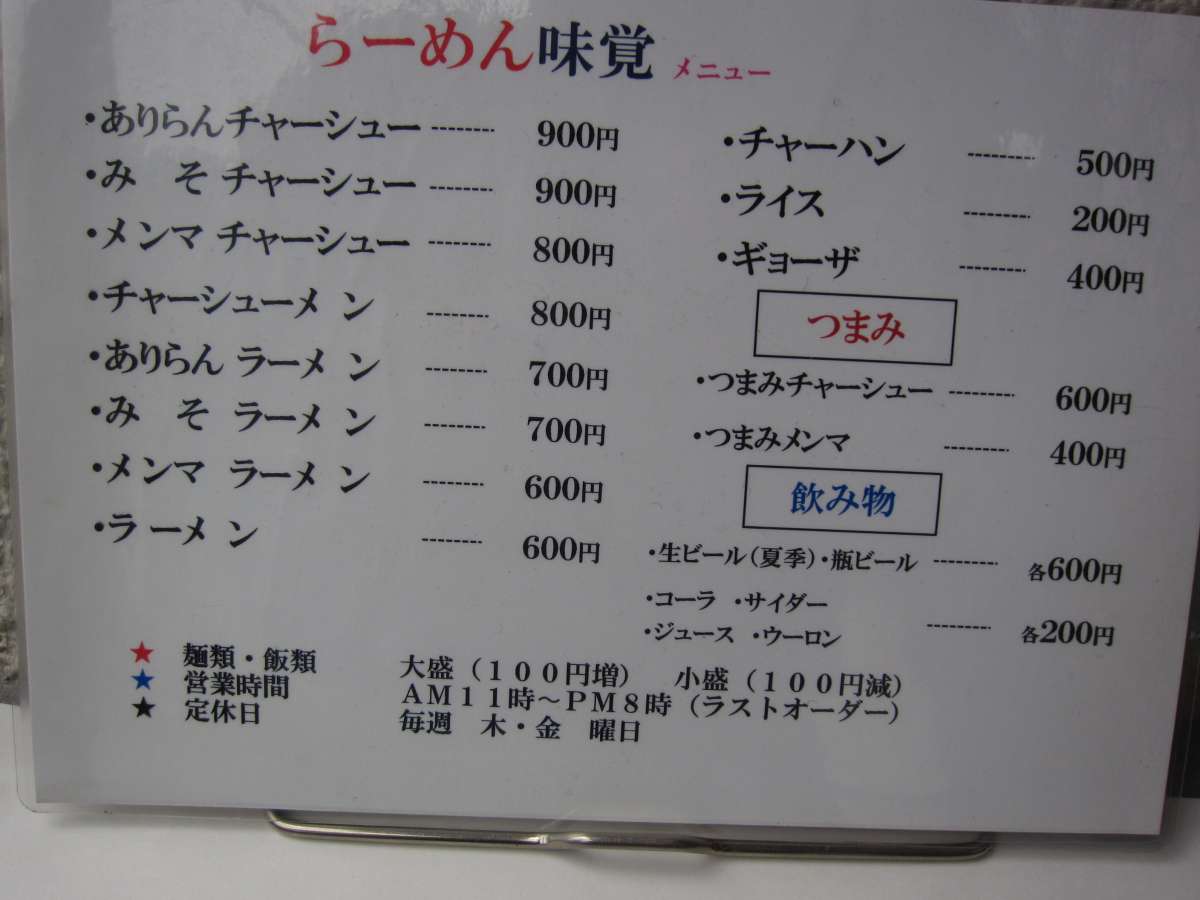 らーめん味覚 メニュー
・ありらんチャーシュー -------- 900円
・み そ チャーシュー -------- 900円
・メンマ チャーシュー -------- 800円
・チャーシューメン -------- 800円
・ありらん ラーメン -------- 700円
・み そ ラーメン -------- 700円
・メンマ ラーメン -------- 600円
・ラーメン -------- 600円
・チャーハン -------- 500円
・ライス -------- 200円
・ギョーザ -------- 400円
つまみ
・つまみチャーシュー -------- 600円
・つまみメンマ -------- 400円
飲み物
・生ビール(夏季)・瓶ビール -------- 各600円
・コーラ ・サイダー
・ジュース ・ウーロン -------- 各200円
★ 麺類・飯類 大盛(100円増) 小盛(100円減)
★ 営業時間 AM11時~PM8時(ラストオーダー)
★ 定休日 毎週 木・金 曜日